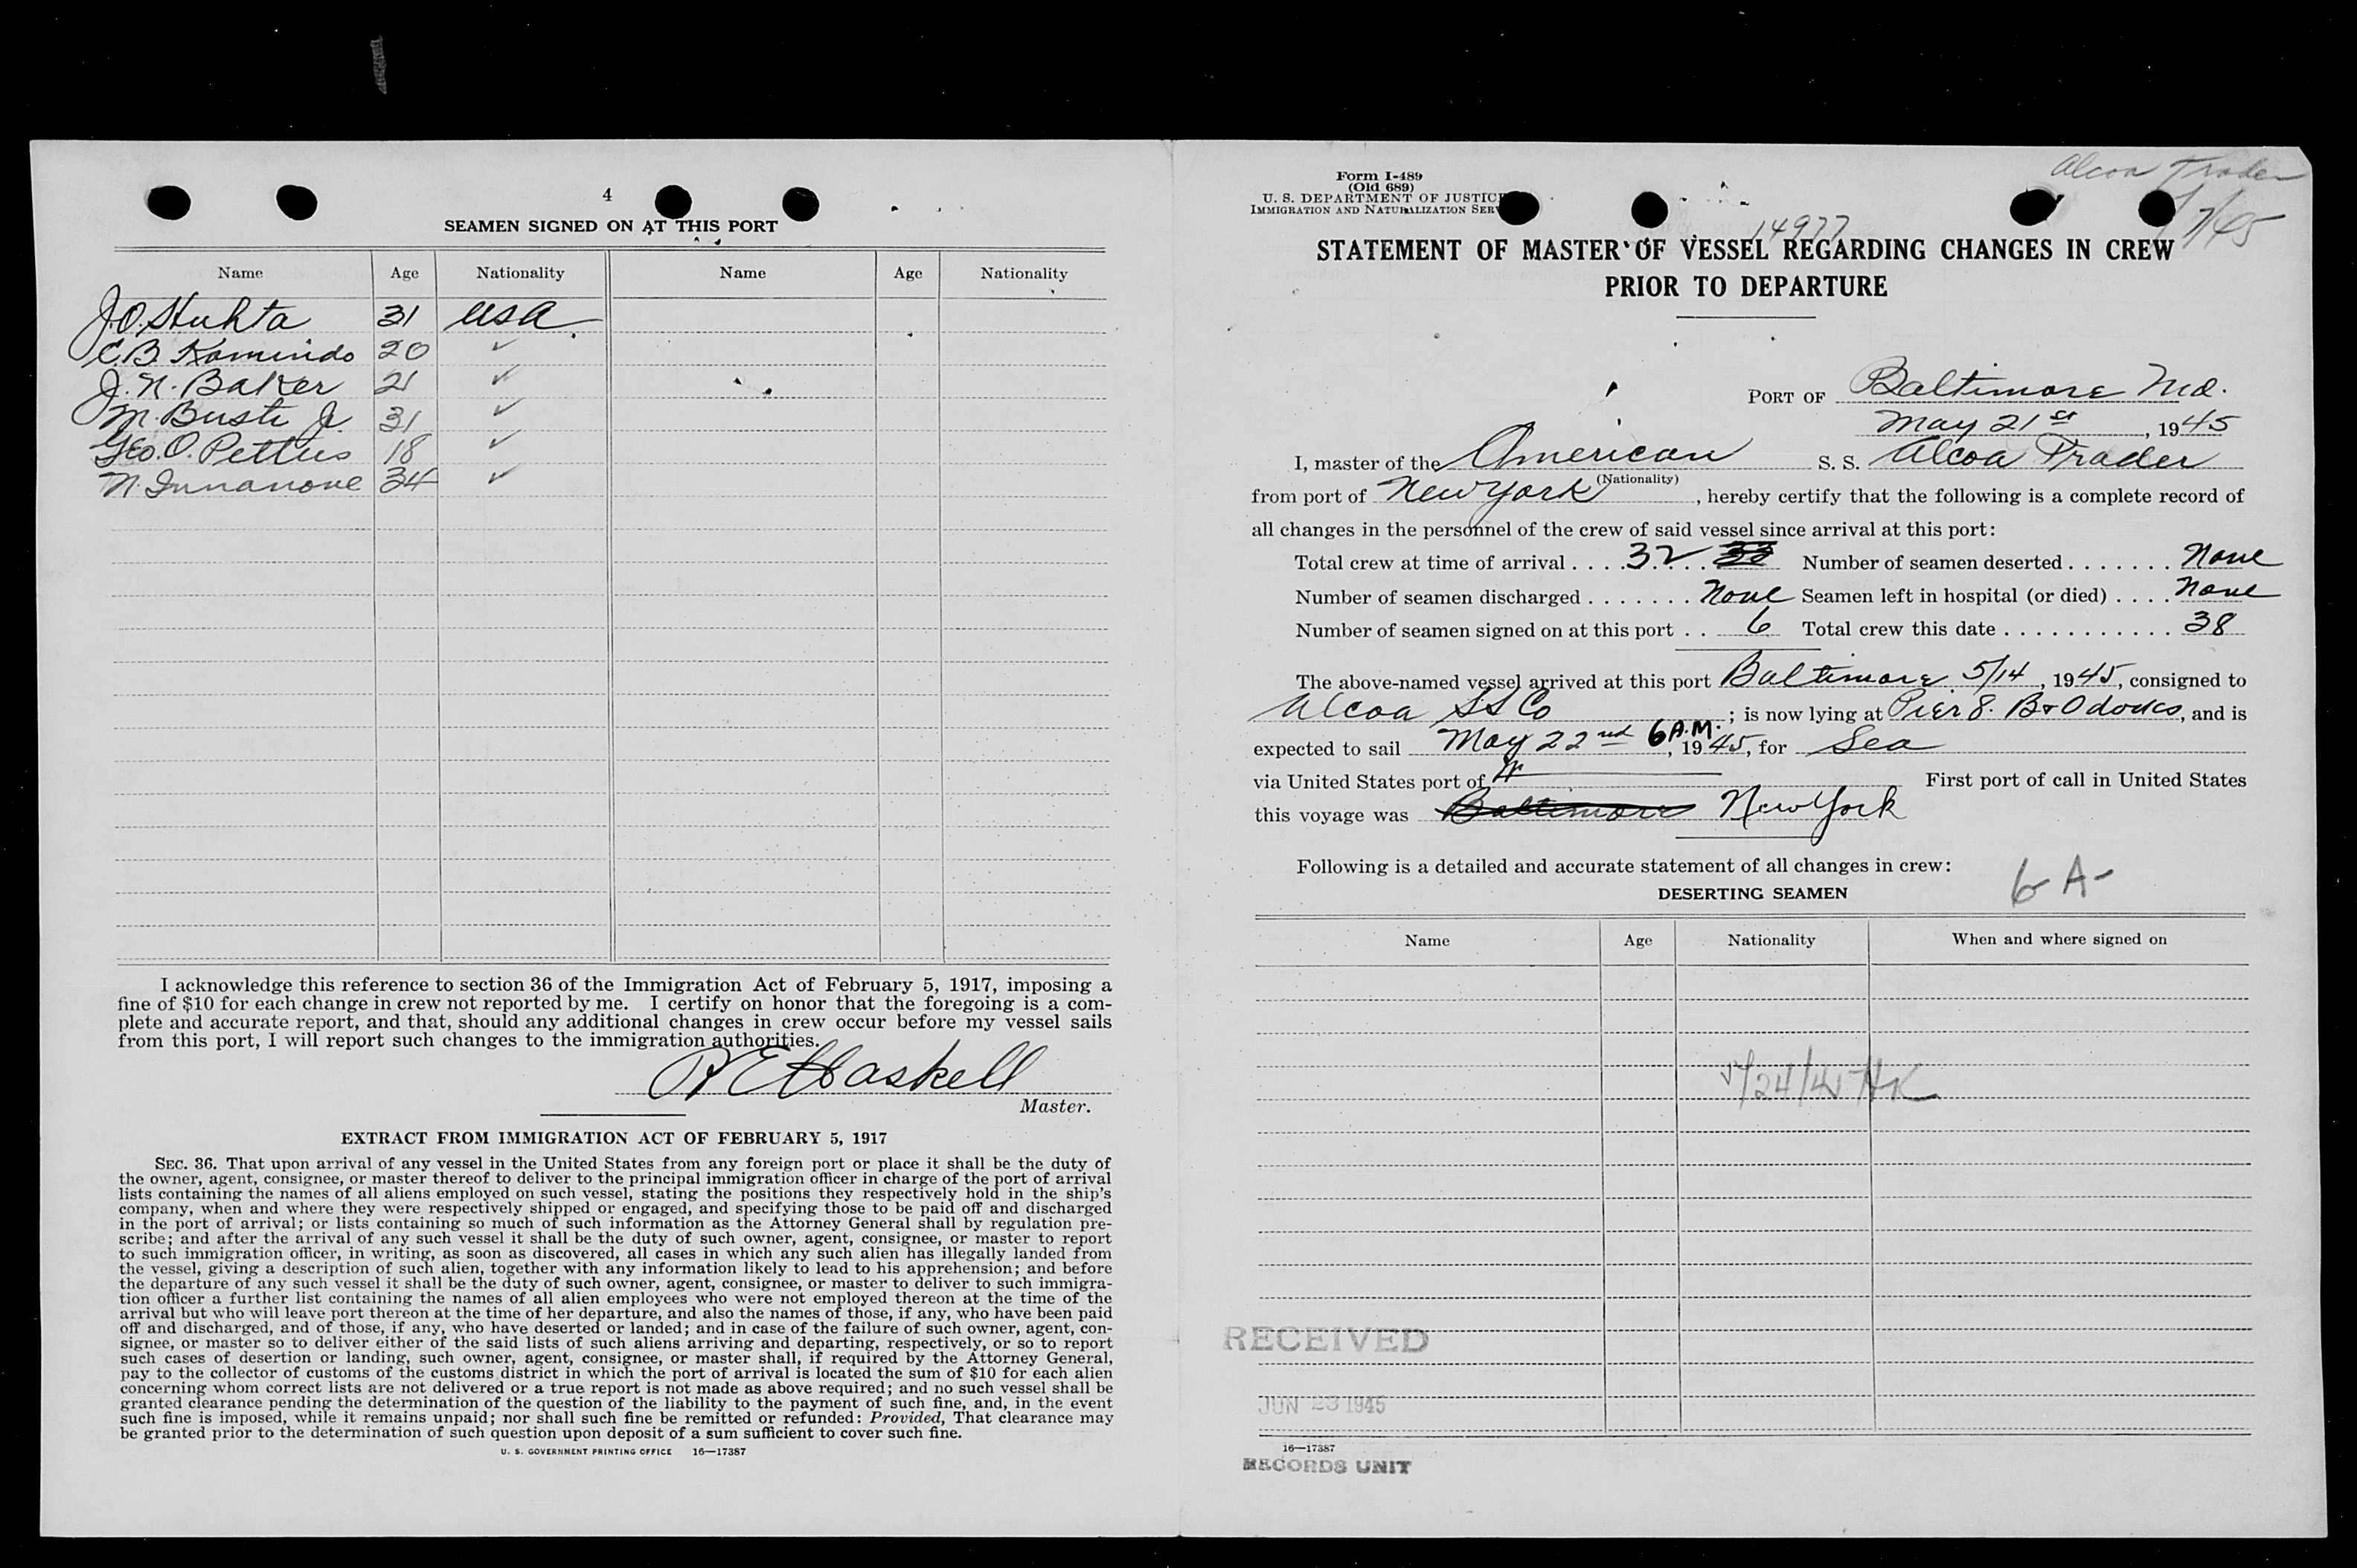 4
SEAMEN SIGNED ON AT THIS PORT
Name Age Nationality Name Age Nationality
J.O. Huhta 31 USA
C.B. Komindo 20 ✓
J.N. Baker 21 ✓
M. Busti Jr. 31 ✓
Geo. O. Pettus 18 ✓
N. Innanone 34 ✓
I acknowledge this reference to section 36 of the Immigration Act of February 5, 1917, imposing a
fine of $10 for each change in crew not reported by me. I certify on honor that the foregoing is a com-
plete and accurate report, and that, should any additional changes in crew occur before my vessel sails
from this port, I will report such changes to the immigration authorities.
R E Haskell
Master.
EXTRACT FROM IMMIGRATION ACT OF FEBRUARY 5, 1917
SEC. 36. That upon arrival of any vessel in the United States from any foreign port or place it shall be the duty of
the owner, agent, consignee, or master thereof to deliver to the principal immigration officer in charge of the port of arrival
lists containing the names of all aliens employed on such vessel, stating the positions they respectively hold in the ship's
company, when and where they were respectively shipped or engaged, and specifying those to be paid off and discharged
in the port of arrival; or lists containing so much of such information as the Attorney General shall by regulation pre-
scribe; and after the arrival of any such vessel it shall be the duty of such owner, agent, consignee, or master to report
to such immigration officer, in writing, as soon as discovered, all cases in which any such alien has illegally landed from
the vessel, giving a description of such alien, together with any information likely to lead to his apprehension; and before
the departure of any such vessel it shall be the duty of such owner, agent, consignee, or master to deliver to such immigra-
tion officer a further list containing the names of all alien employees who were not employed thereon at the time of the
arrival but who will leave port thereon at the time of her departure, and also the names of those, if any, who have been paid
off and discharged, and of those, if any, who have deserted or landed; and in case of the failure of such owner, agent, con-
signee, or master so to deliver either of the said lists of such aliens arriving and departing, respectively, or so to report
such cases of desertion or landing, such owner, agent, consignee, or master shall, if required by the Attorney General,
pay to the collector of customs of the customs district in which the port of arrival is located the sum of $10 for each alien
concerning whom correct lists are not delivered or a true report is not made as above required; and no such vessel shall be
granted clearance pending the determination of the question of the liability to the payment of such fine, and, in the event
such fine is imposed, while it remains unpaid; nor shall such fine be remitted or refunded: Provided, That clearance may
be granted prior to the determination of such question upon deposit of a sum sufficient to cover such fine.
U. S. GOVERNMENT PRINTING OFFICE 16—17387
Alcoa Trader
Form I-489
(Old 689)
U. S. DEPARTMENT OF JUSTICE
IMMIGRATION AND NATURALIZATION SER
14977
STATEMENT OF MASTER OF VESSEL REGARDING CHANGES IN CREW
PRIOR TO DEPARTURE
PORT OF Baltimore Md.
May 21st, 1945
I, master of the American S. S. Alcoa Trader
(Nationality)
from port of New York, hereby certify that the following is a complete record of
all changes in the personnel of the crew of said vessel since arrival at this port:
Total crew at time of arrival . . . . 32 . . 33 Number of seamen deserted . . . . . . . None
Number of seamen discharged . . . . . . . None Seamen left in hospital (or died) . . . . None
Number of seamen signed on at this port . . 6 Total crew this date . . . . . . . . . . . 38
The above-named vessel arrived at this port Baltimore 5/14, 1945, consigned to
Alcoa SS Co; is now lying at Pier 8. B&O docks, and is
expected to sail May 22nd 6 A.M., 1945, for Sea
via United States port of First port of call in United States
this voyage was Baltimore New York
Following is a detailed and accurate statement of all changes in crew:
6 A-
DESERTING SEAMEN
Name Age Nationality When and where signed on
5/24/45 HK
RECEIVED
JUN 23 1945
16—17387
RECORDS UNIT